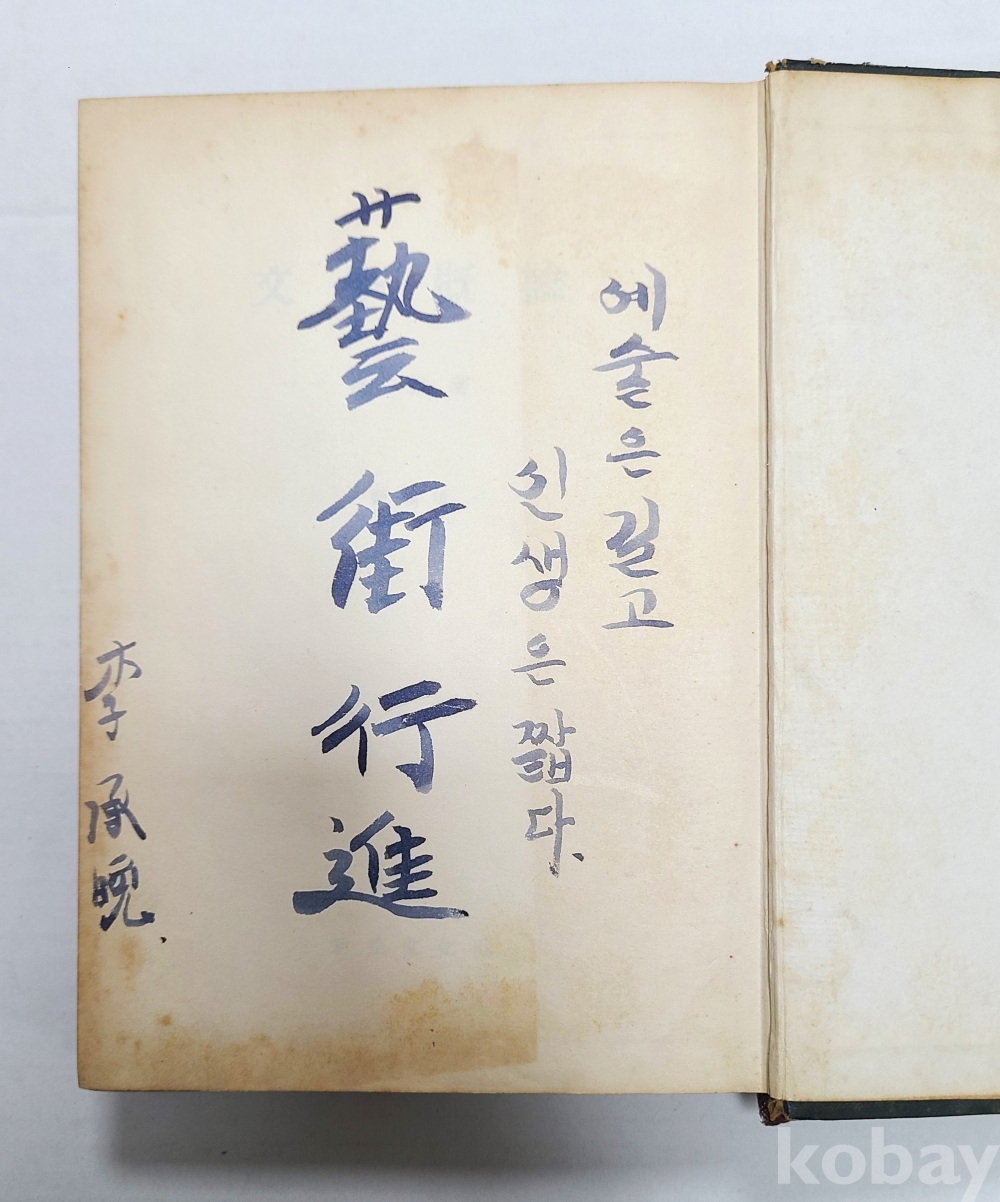 예술은 길고
인생은 짧다.
藝街行進
李承晩.
kobay